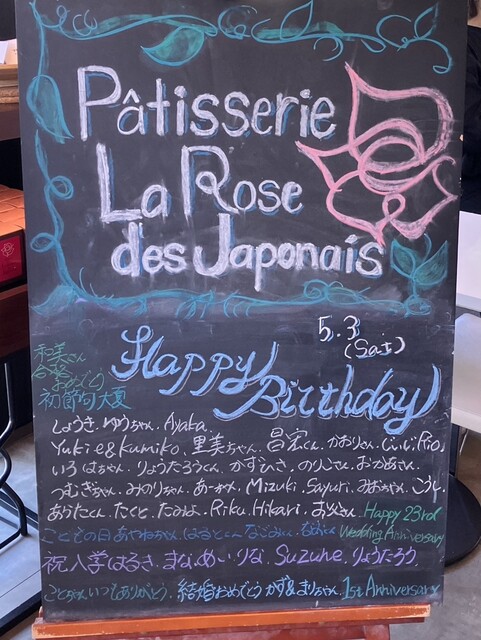 Pâtisserie
La Rose
des Japonais
5.3
(Sat)
和美さん
合格
おめでとう
初節句 大夏
Happy Birthday
しょうき、ゆりちゃん、Ayaka、
Yukie&Kumiko、里美ちゃん、昌宏くん、かおりさん、じぃじ、Rio、
いろはちゃん、りょうたろうくん、かずひさ、のりこさん、おかあさん、
つむぎちゃん、みのりちゃん、あーちゃん、Mizuki、Sayuri、みおちゃん、こうし
たくと、たみよ、Riku、Hikari、お父さん、Happy 23rd
Wedding Anniversary
こどもの日 あやねちゃん はるとくん なごみん
祝入学 はるき、まな、めい、りな、Suzune、りょうたろう、
ことちゃん いつもありがとう、結婚おめでとう かず&まりちゃん、1st Anniversary